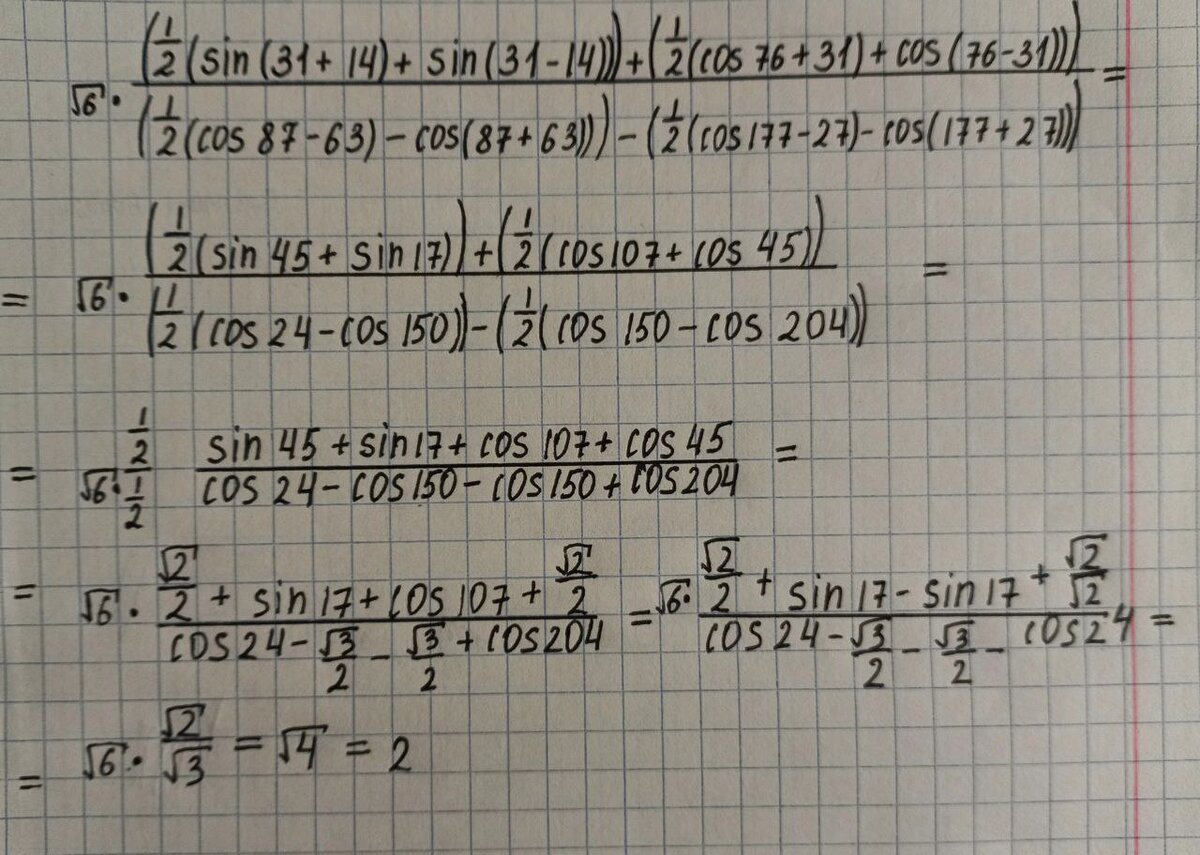 √6 · ((1/2(sin(31+14)+sin(31-14)))+(1/2(cos 76+31)+cos(76-31))))/((1/2(cos 87-63)-cos(87+63)))-(1/2(cos177-27)-cos(177+27)))) =
= √6 · ((1/2(sin 45+sin17))+(1/2(cos107+cos 45)))/((1/2(cos 24-cos 150))-(1/2(cos 150-cos 204))) =
= √6 · (1/2)/(1/2) (sin 45+sin17+cos 107+cos 45)/(cos 24-cos150-cos150+cos204) =
= √6 · (√2/2+sin17+cos107+√2/2)/(cos24-√3/2-√3/2+cos204) = √6 · (√2/2+sin17-sin17+√2/√2)/(cos24-√3/2-√3/2-cos24) =
= √6 · √2/√3 = √4 = 2